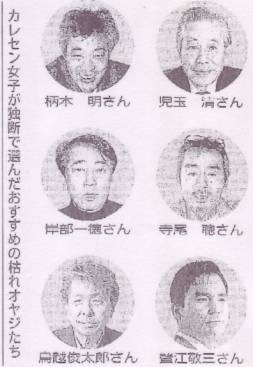 カレセン女子が独断で選んだおすすめの枯れオヤジたち
柄本　明さん
児玉　清さん
岸部一徳さん
寺尾　聰さん
鳥越俊太郎さん
蟹江敬三さん